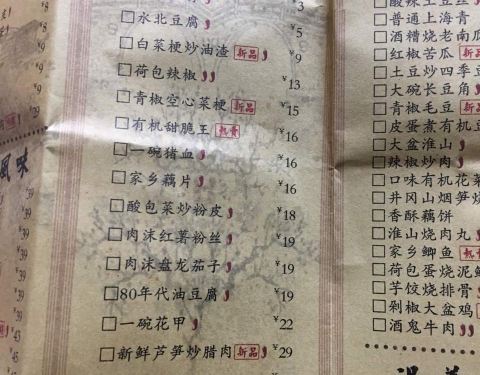 ¥3
□水北豆腐
¥5
□白菜梗炒油渣 新品
¥9
□荷包辣椒
¥13
□青椒空心菜梗 新品
¥15
□有机甜脆王 热卖
¥16
□一碗猪血
¥16
□家乡藕片
¥16
□酸包菜炒粉皮
¥18
□肉沫红薯粉丝
¥19
□肉沫盘龙茄子
¥19
□80年代油豆腐
¥19
□一碗花甲
¥22
□新鲜芦笋炒腊肉 新品
¥29
□普通上海青
□酒糟烧老南瓜
□红椒苦瓜 新品
□土豆炒四季豆
□大碗长豆角
□青椒毛豆 新品
□皮蛋煮有机
□大盆淮山
□辣椒炒肉
□口味有机花菜
□井冈山烟笋烧
□香酥藕饼
□淮山烧肉丸
□家乡鲫鱼 热卖
□荷包蛋烧泥鳅
□芋饺烧排骨
□剁椒大盆鸡
□酒鬼牛肉
風味
¥39
¥39
¥39
¥39
¥43
¥45